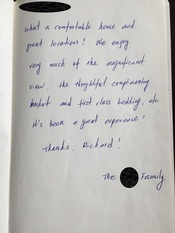 what a comfortable home and
great location! We enjoy
very much of the magnificent
view, the thoughtful complimentary
basket and first class bedding, etc
it's been a great experience!
Thanks, Richard!
The Family